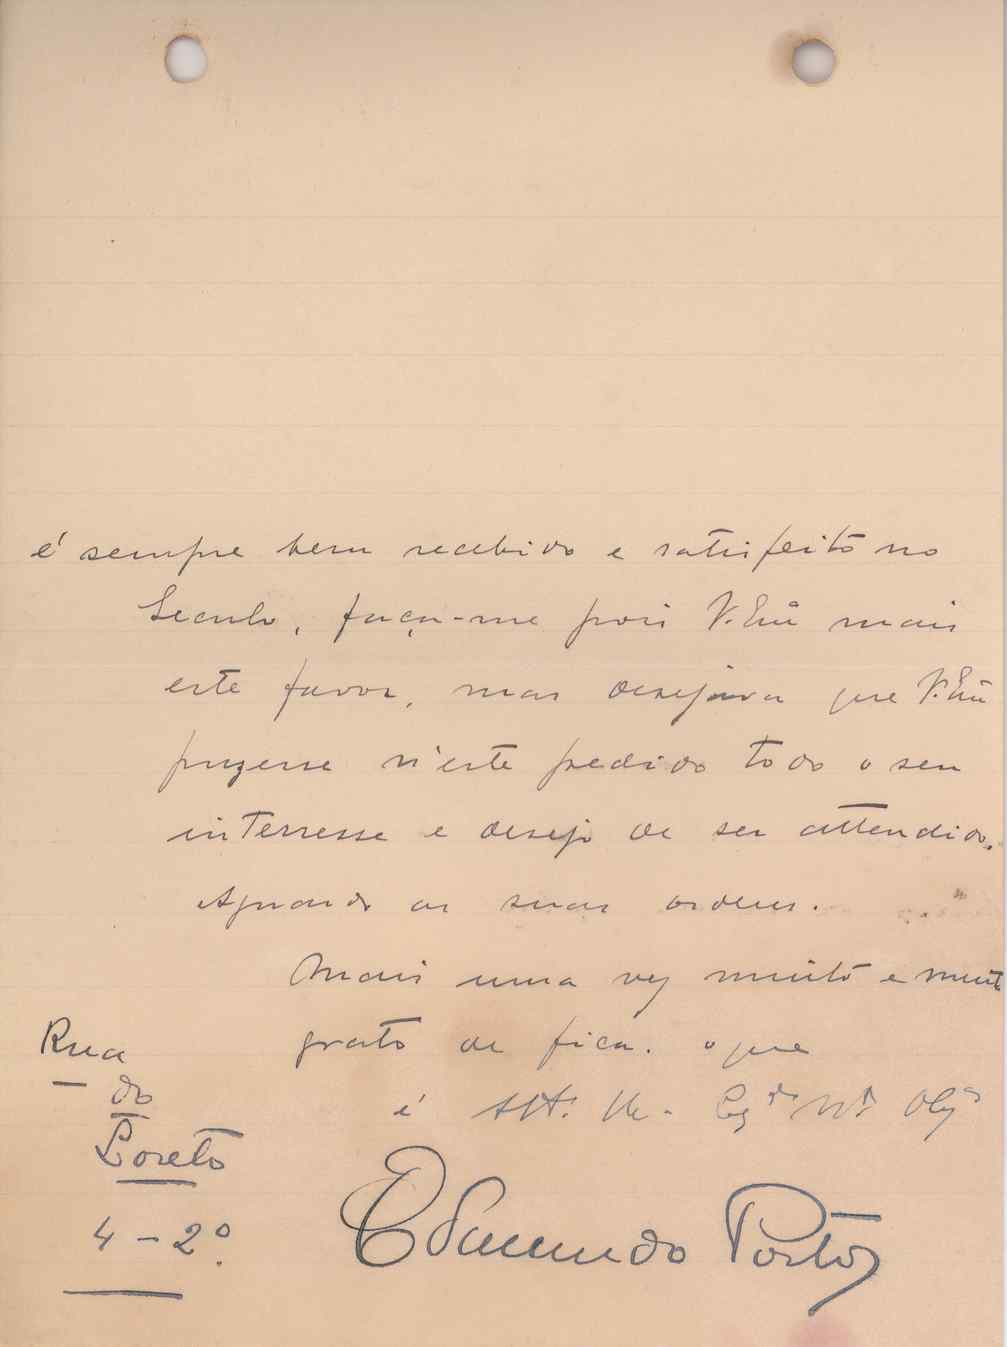 é sempre bem recebido e satisfeito no
Seculo, faça-me pois V. Exª mais
este favor, mas desejava que V. Exª
puzesse n'este pedido todo o seu
interesse e desejo de ser attendido.
Aguardo as suas ordens.
Mais uma vez muito e muito
grato de fica. o que
é Attº Vr.
Obgº
Edmundo Porto
Rua
do
Loreto
4 - 2º